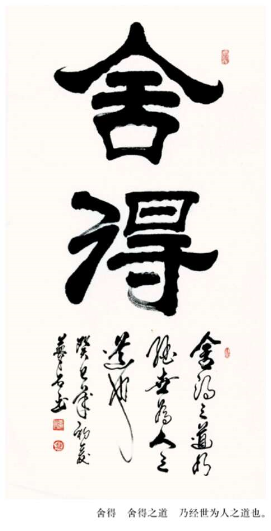 舍得
舍得之道乃
经世為人之
道也
癸巳年初夏
舍得　舍得之道　乃经世为人之道也。